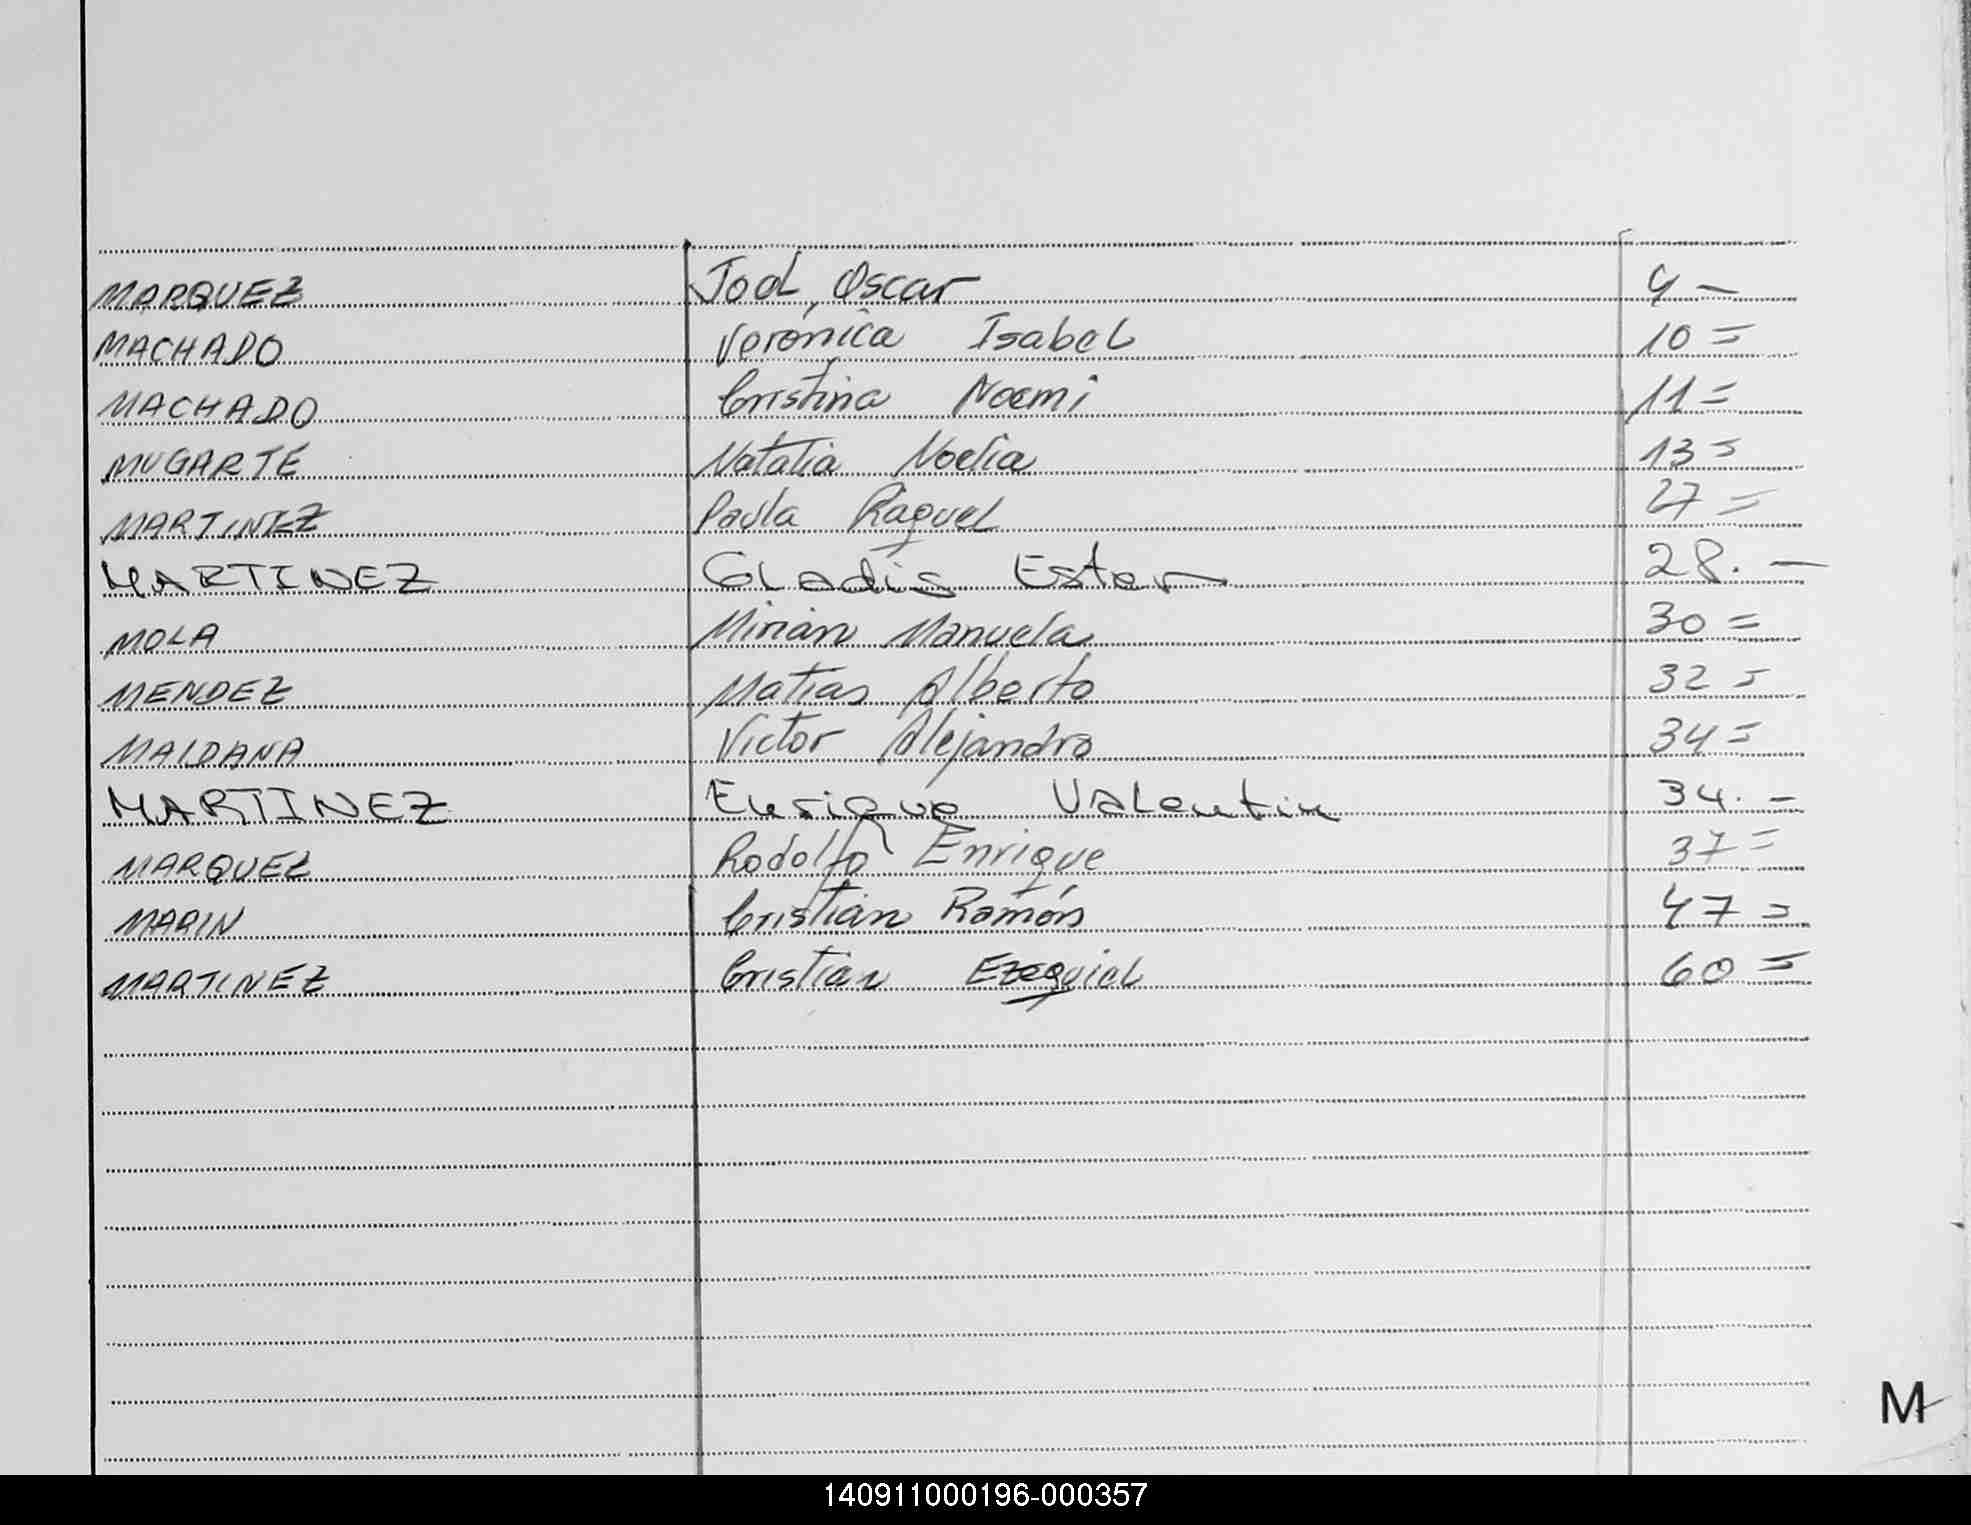 MARQUEZ Joel, Oscar 4 -
MACHADO Verónica Isabel 10 =
MACHADO Cristina Noemi 11 =
MUGARTE Natalia Noelia 13 =
MARTINEZ Paula Raquel 27 =
MARTINEZ Gladis Ester 28. -
MOLA Mirian Manuela 30 =
MENDEZ Matias Alberto 32 =
MALDANA Victor Alejandro 34 =
MARTINEZ Enrique Valentin 34. -
MARQUEZ Rodolfo Enrique 37 =
MARIN Cristian Ramón 47 =
MARTINEZ Cristian Ezequiel 60 =
M
140911000196-000357